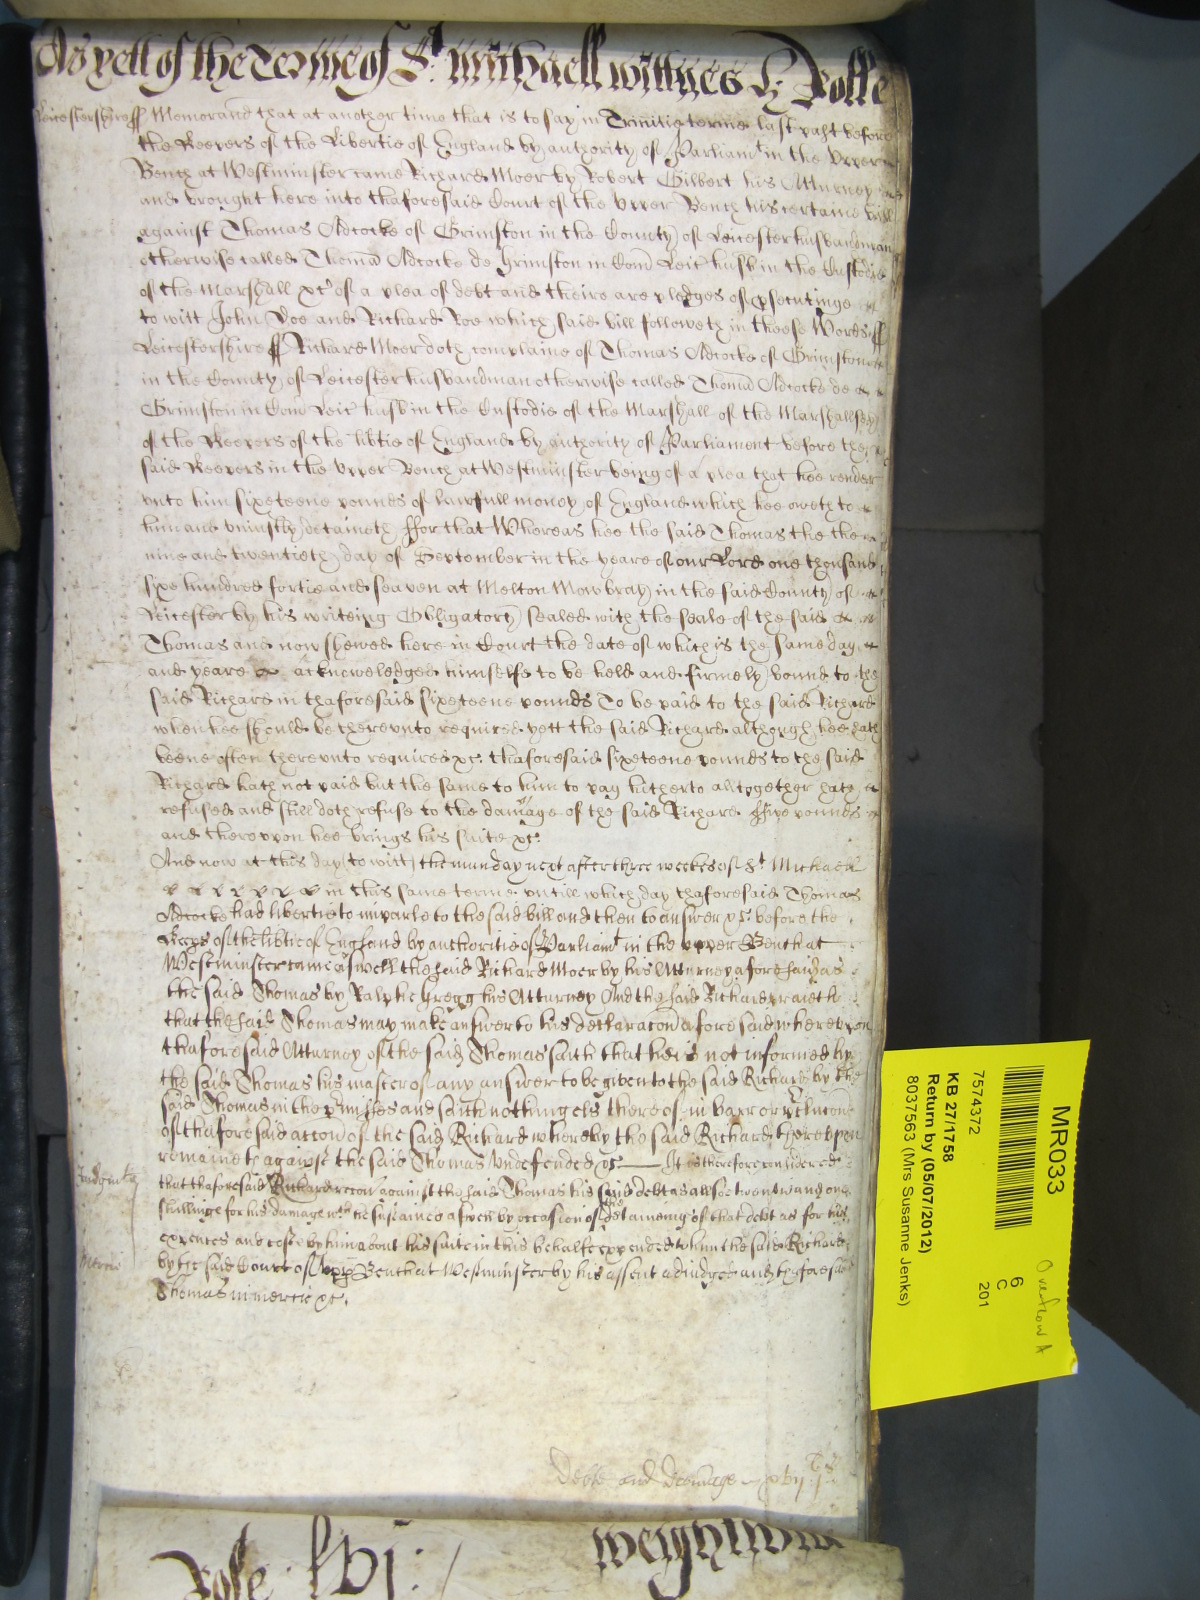 As yett of the Terme of St Michaell wittnes H Rolle
Leicestershire ss Memorand that at another time that is to say in Trinitie terme last past before
the Keepers of the Libertie of England by authority of Parliamt in the upper
Bench at Westminster came Richard Moer by Robert Gilbert his Atturney
and brought here into thaforesaid Court of the upper Bench his certaine bill
against Thomas Adcocke of Grimston in the County of Leicester husbandman
otherwise called Thomā Adcocke de Grimston in Com Leic husb in the Custodie
of the Marshall &c of a plea of debt and theire are pledges of psecutinge
to witt John Doe and Richard Roe which said bill followeth in theese Words ss
Leicestershire ss Richard Moer doth complaine of Thomas Adcocke of Grimston
in the County of Leicester husbandman otherwise called Thomā Adcocke de
Grimston in Com Leic husb in the Custodie of the Marshall of the Marshallsey
of the Keepers of the libtie of England by authority of Parliament before the
said Keepers in the upper Bench at Westminster being of a plea that hee render
unto him sixeteene pounds of lawfull money of England which hee oweth to
him and uniustly detaineth ffor that Whereas hee the said Thomas the the
nine and twentieth day of September in the yeare of our Lord one thousand
sixe hundred fortie and seaven at Melton Mowbray in the said County of
Leicester by his writeing Obligatory sealed with the seale of the said
Thomas and now shewed here in Court the date of which is the same day
and yeare acknoweledged himselfe to be held and firmely bound to the
said Richard in thaforesaid sixeteene pounds To be paid to the said Richard
when hee should be thereunto required yett the said Richard although hee hath
beene often thereunto required &c thaforesaid sixeteene pounds to the said
Richard hath not paid but the same to him to pay hitherto alltogether hath
refused and still doth refuse to the damage of the said Richard ffive pounds
and thereupon hee brings his suite &c
And now at this day to witt the munday next after three weekes of St Michaell
in this same terme untill which day thaforesaid Thomas
Adcocke had libertie to imparle to the said bill and then to answer &c before the
Keeps of the libtie of England by authoritie of Parliamt in the upper Bench at
Westminster came aswell the said Richard Moer by his Atturney aforesaid as
the said Thomas by Ralphe Gregg his Atturney And the said Richard praieth
that the said Thomas may make answer to his declaracon aforesaid whereupon
thaforesaid Atturney of the said Thomas saith that hee is not informed by
the said Thomas his master of any answer to be given to the said Richard by the
said Thomas in the pmisses and saith nothing els thereof in barr or
of thaforesaid accon of the said Richard whereby the said Richard thereupon
remaineth against the said Thomas undefended &c It is therefore considered
that thaforesaid Richard recov against the said Thomas his said debt as alsoe twenty and one
shillinge for his damage wch he sustained aswell by occasion of the detaineing of that debt as for his
expences and coste by him about his suite in this behalfe expended whim the said Richard
by the said Court of Upp Bench at Westminster by his assent adiudged and thaforesaid
Thomas in mercie &c
Judgmt
Mercie
Debte and Damage xvij li j s
Rolle lvj
MR033
7574372
KB 27/1758
Return by (05/07/2012)
8037563 (Mrs Susanne Jenks)
6
C
201
Overflow A